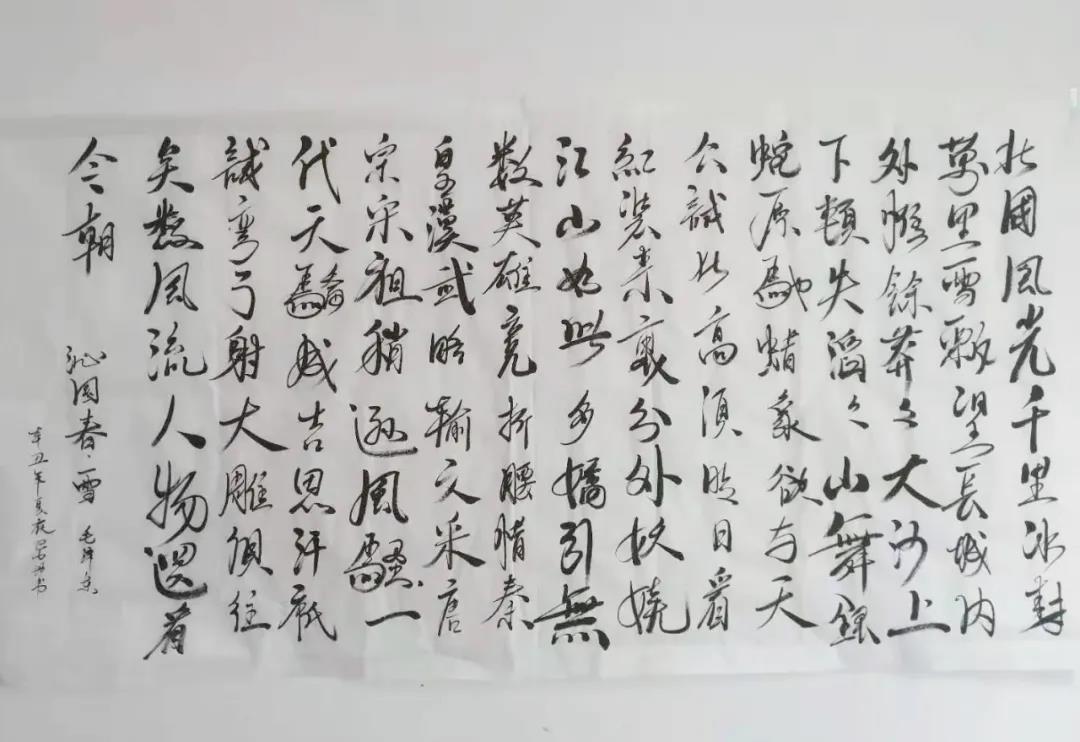 北國風光千里冰封
萬里雪飄望長城内
外惟餘莽々大河上
下頓失滔々山舞銀
蛇原馳蜡象欲与天
公試比高須晴日看
紅裝素裹分外妖嬈
江山如此多嬌引無
数英雄竞折腰惜秦
皇漢武略輸文采唐
宗宋祖稍遜風騷一
代天驕成吉思汗祇
識弯弓射大雕俱往
矣数風流人物還看
今朝
沁園春·雪 毛泽东
辛丑年夏夜书